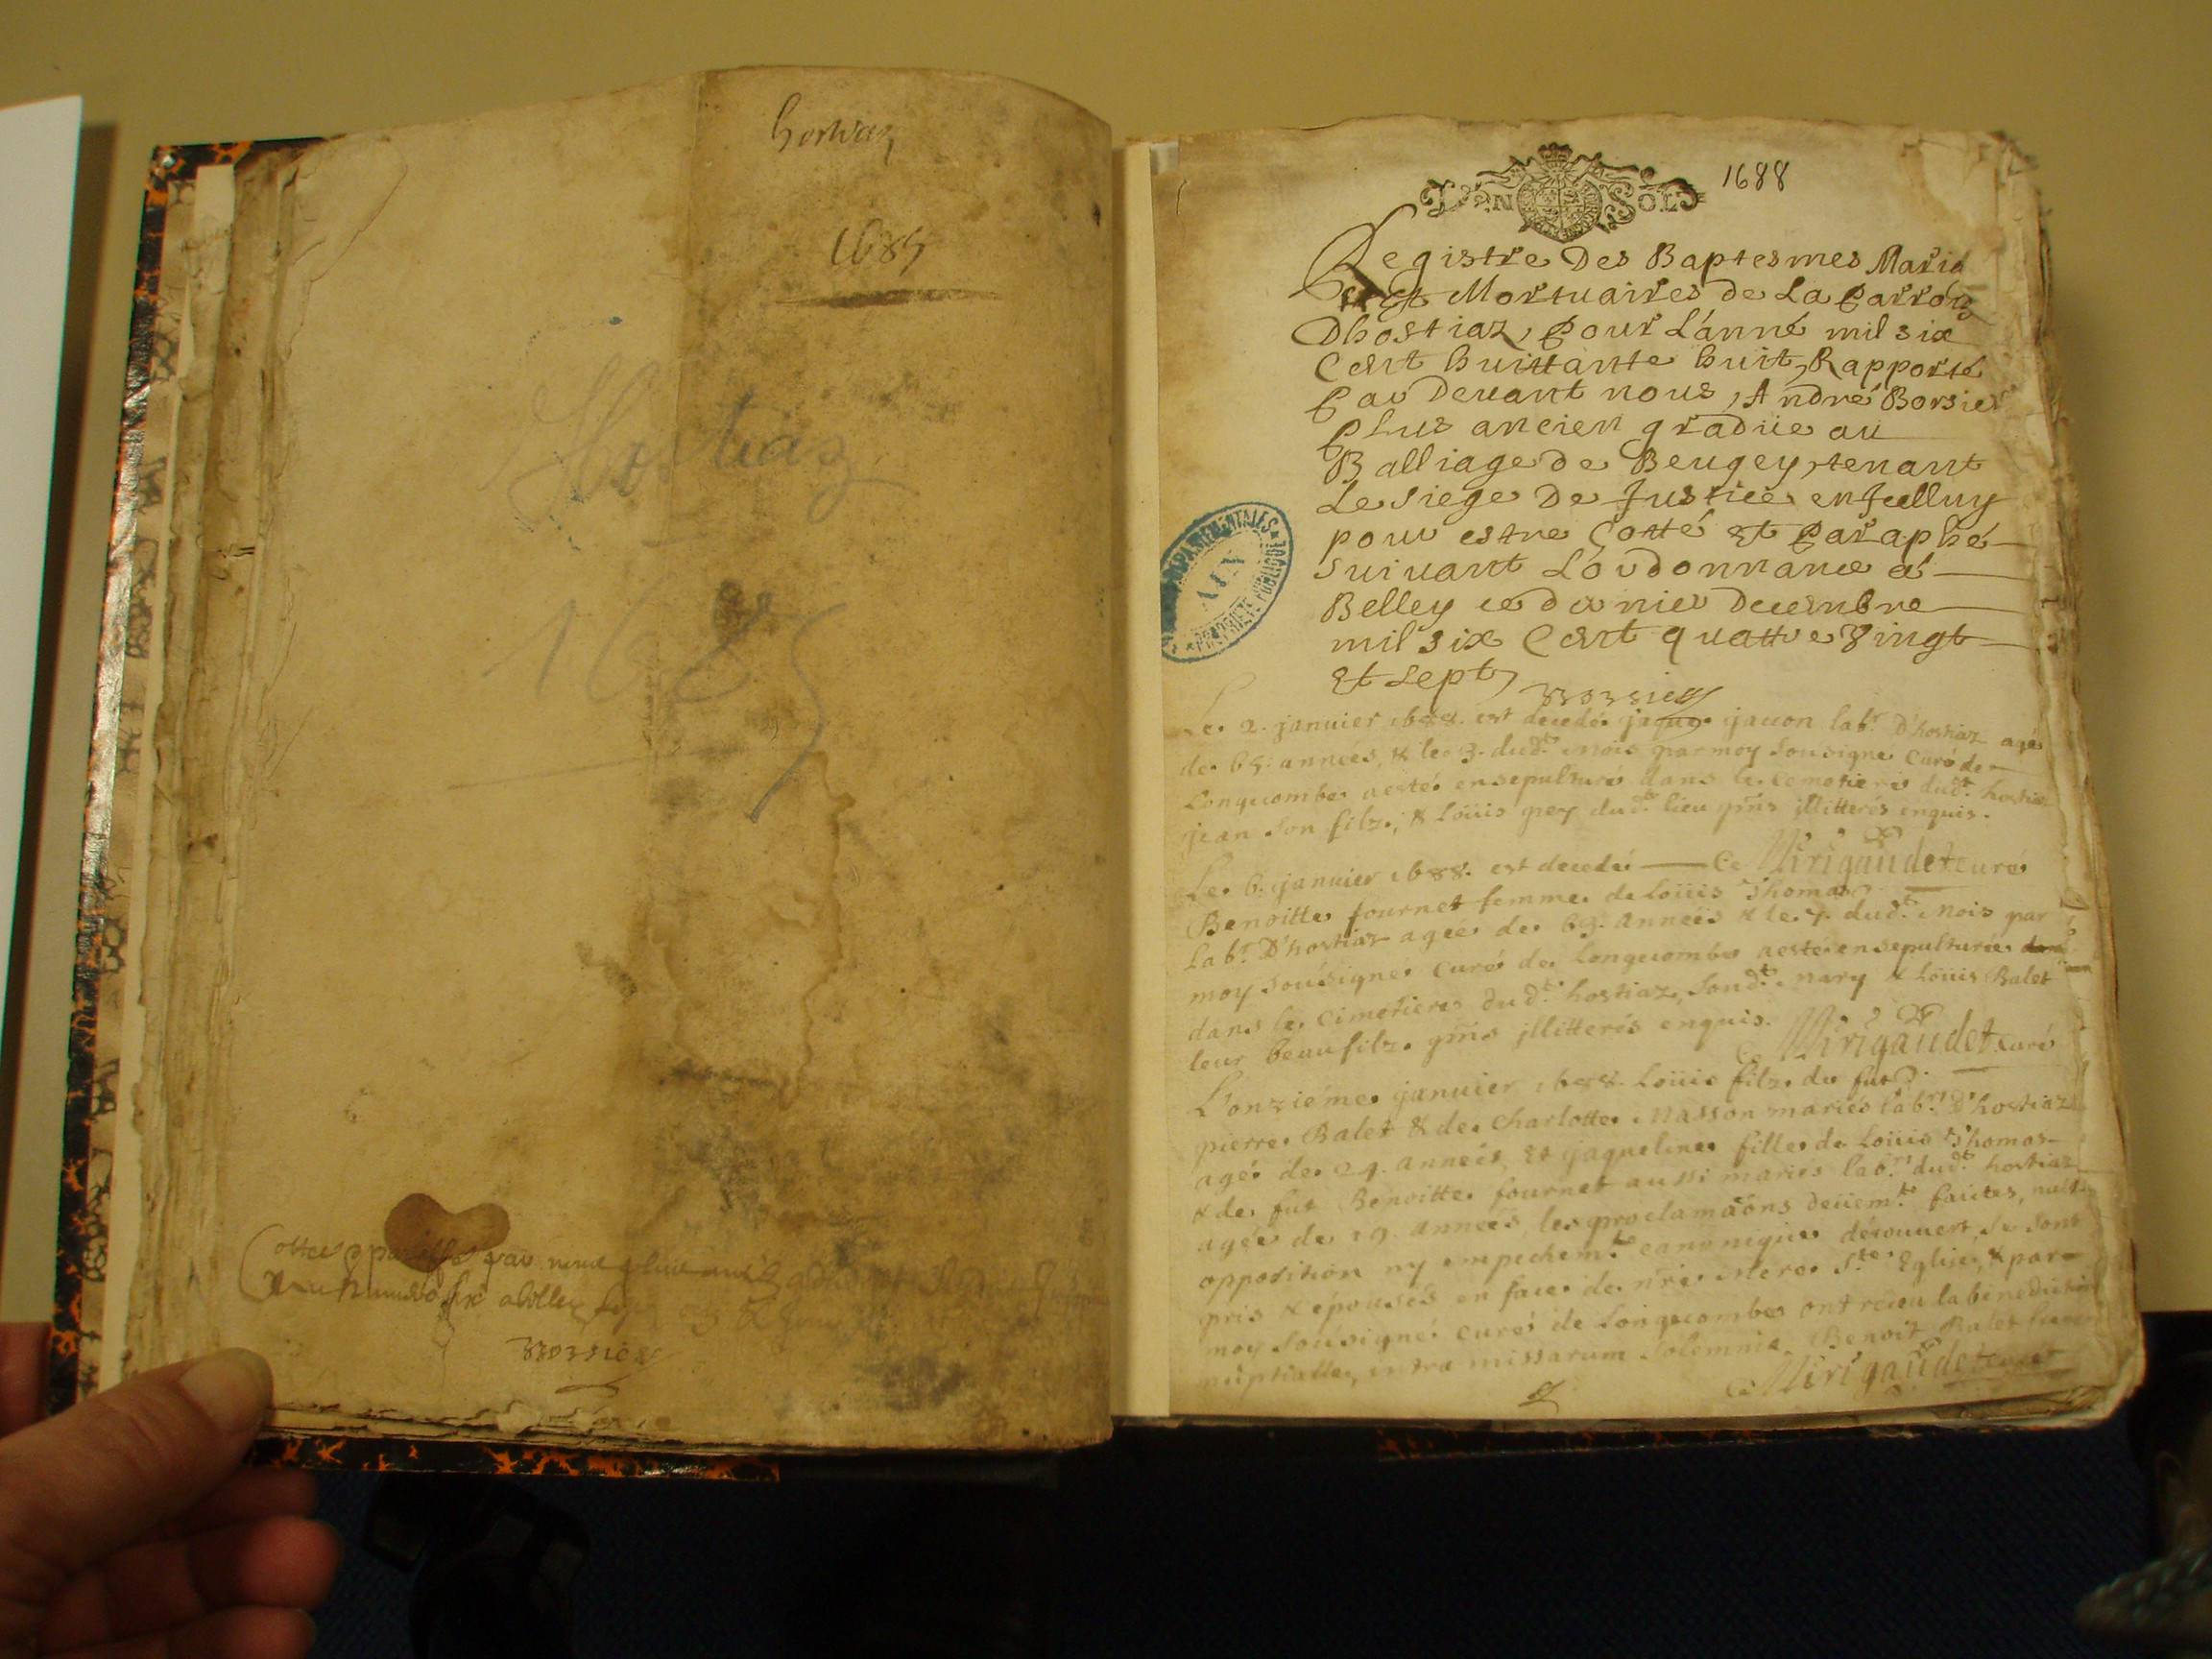 hostiaz
1685
Hostiaz
1685
Borsier
GEN SOLS
1688
Registre Des Baptesmes Maria
Et Mortuaires de La Parrois
Dhostiaz, Pour L'anné mil six
Cent huittante huit, Rapporté
Par Devant nous, André Borsier
Plus ancien gradüe au
Balliage de Beugey, tenant
Le siege De Justice en Jcelluy
pour estre Cotté Et Paraphé
suivant Lordonnance á
Belley ce dernier Decembre
mil six Cent quattre Vingt
Et Sept,
Borsier
DEPARTEMENTALES
AIN
PROPRIETE PUBLIQUE
Le 2. januier 1688. est decedé jaque jauon lab.r D'hostiaz agé
de 65. annees, & le 3. dud.t mois par moy sousigné Curé de
Longecombe aesté ensepulturé dans le cemetiere dud.t hostiaz
jean son filz, & Loüis grey dud.t lieu pñs jllitterés enquis.
Le 6. januier 1688. est decedé — Ce Nirigaudet curé
Benoitte fournet femme de Loüis Thomas
lab.r D'hostiaz agée de 63. années & le 7. dud.t mois par
moy sousigné Curé de Longecombe aesté ensepulturée
dans le cimetiere dud.t hostiaz, sond.t mary & Loüis Balet
leur beaufilz pñs jllitterés enquis. Ce Nirigaudet Curé
L'onziéme januier 1688. Loüis filz de fut
pierre Balet & de Charlotte Masson mariés lab.rs D'hostiaz
agé de 24. années, Et jaqueline fille de Loüis Thomas
& de fut Benoitte fournet aussi mariés lab.rs dud.t hostiaz
agée de 19. années, les proclamaõns deüem.t faittes, nulle
opposition ny empechem.t canonique découuert, se sont
pris & épousés en face de nr̃e mere S.te Eglise, & par
moy sousigné curé de Longecombe ont receu la benediction
nuptialle, intra missarum solemnia. Benoit Balet
Ce Nirigaudet curé